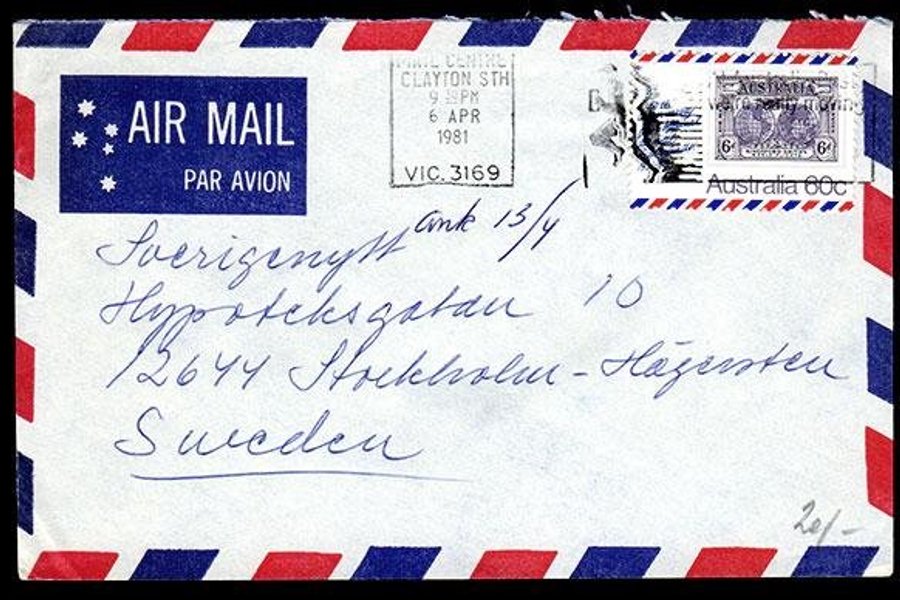 AIR MAIL
PAR AVION
MAIL CENTRE
CLAYTON STH
9 PM
6 APR
1981
VIC. 3169
AUSTRALIA
6d 6d
Australia 60c
really moving
ank 13/4
Sverigenytt
Hypoteksgatan 10
12644 Stockholm - Hägersten
Sweden